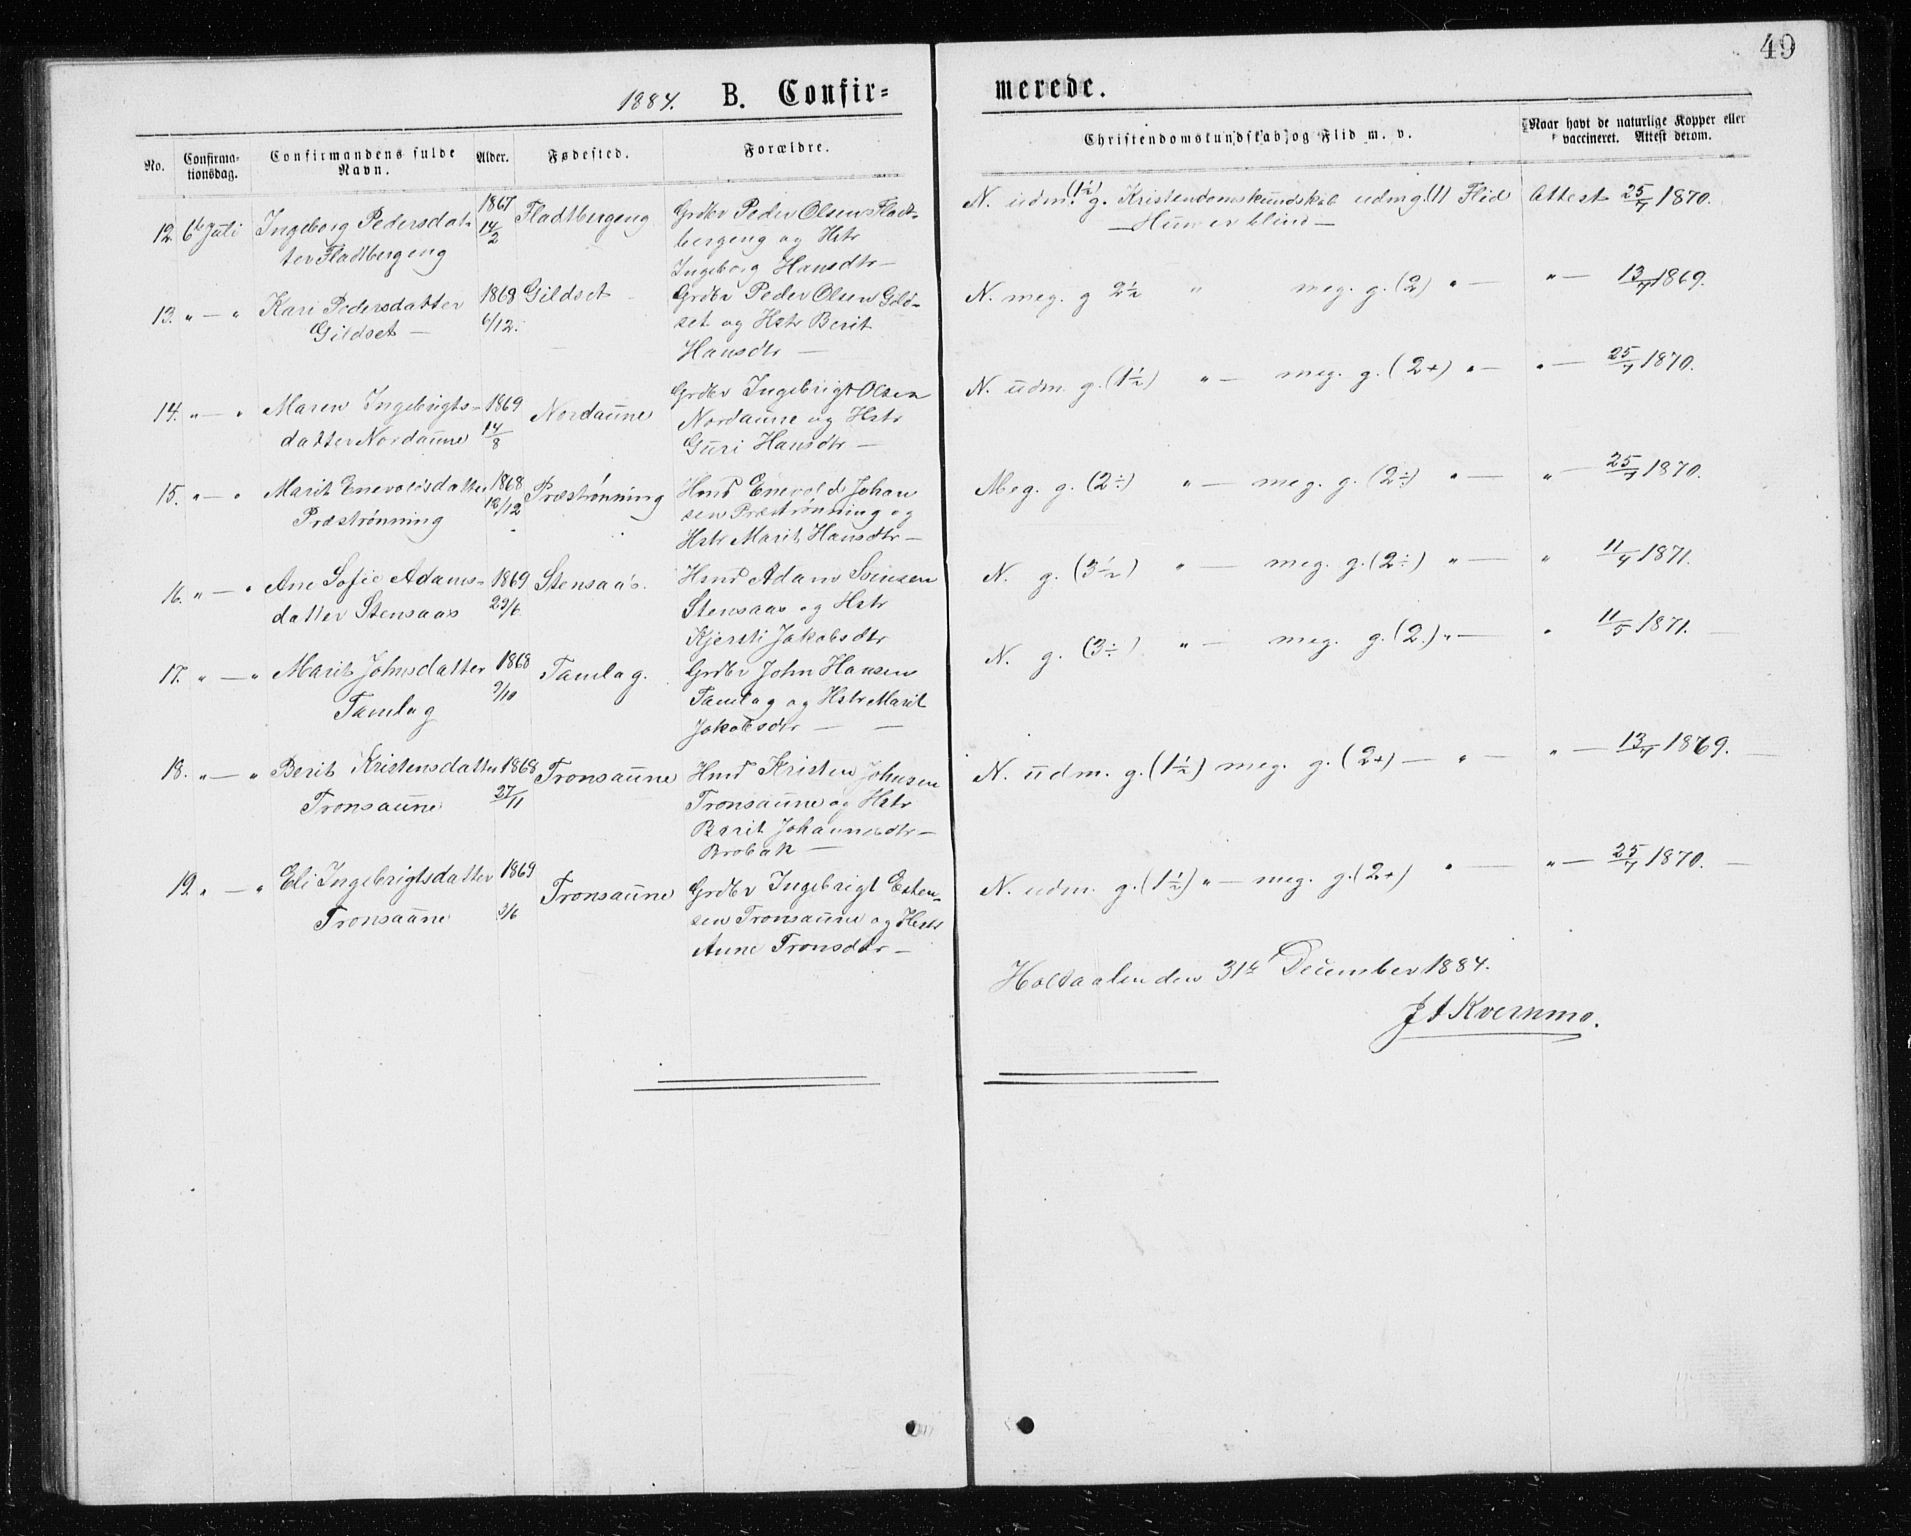 49
1884. B. Confir=
merede.
No.
Confirma-
tionsdag.
Confirmandens fulde
Navn.
Alder.
Fødested.
Forældre.
Christendomskundskab, og Flid m. v.
Naar havt de naturlige Kopper eller
vaccineret. Attest derom.
12. 6te Juli Ingeborg Pedersdat- 1867 Fladtbergeng Grdbr Peder Olsen Fladt- N. udm. (1½) g. Kristendomskundskab udm.g.(1) Flid Attest 25/7 1870.
ter Fladtbergeng 14/2 bergeng og Hstr —Hun er blind—
Ingeborg Hansdtr—
13. " — " Kari Pedersdatter 1868 Gildset Grdbr Peder Olsen Gild- N. meg. g 2½ " meg. g. (2) " — " — 13/7 1869.
Gildset — 6/12. set og Hstr Berit
Hansdtr —
14. " — " Maren Ingebrigts- 1869 Nordaune Grdbr Ingebrigt Olsen N. udm. g. (1½) " — meg. g. (2+) " — " — 25/7 1870.
datter Nordaune 14/8 Nordaune og Hstr
Guri Hansdtr —
15. " — " Marit Enevoldsdatter 1868 Præstrønning Hmd Enevold Johan Meg. g. (2÷) " — meg. g. (2÷) " — " — 25/7 1870.
Præstrønning 18/12 sen Præstrønning og
Hstr Marit Hansdtr—
16. " — " Ane Sofie Adams- 1869 Stensaas. Hmd Adam Svensen N. g. (3½) " — meg. g. (2÷) " — " 11/4 1871.
datter Stensaas 29/6. Stensaas og Hstr
Kjersti Jakobsdtr
17. " — " Marit Johnsdatter 1868 Tamlag. Grdbr John Hansen N. g. (3÷) " — meg. g. (2.) " — " 11/5 1871. —
Tamlag 9/10 Tamlag og Hstr Marit
Jakobsdtr — —
18. " — " Berit Kristensdatter 1868 Tronsaune Hmd Kristen Johnsen N. udm. g. (1½) meg. g. (2+) — " — " — 13/7 1869. —
Tronsaune 27/11 Tronsaune og Hstr
Berit Johannesdtr —
Brobak —
19. " — " Eli Ingebrigtsdatter 1869 Tronsaune Grdbr Ingebrigt Esten- N. udm. g. (1½) " — meg. g. (2+) " — " — 25/7 1870. —
Tronsaune 3/6 sen Tronsaune og Hustr
Anne Tronsdtr —
Holtaalen den 31te December 1884.
J J Kvernmo.